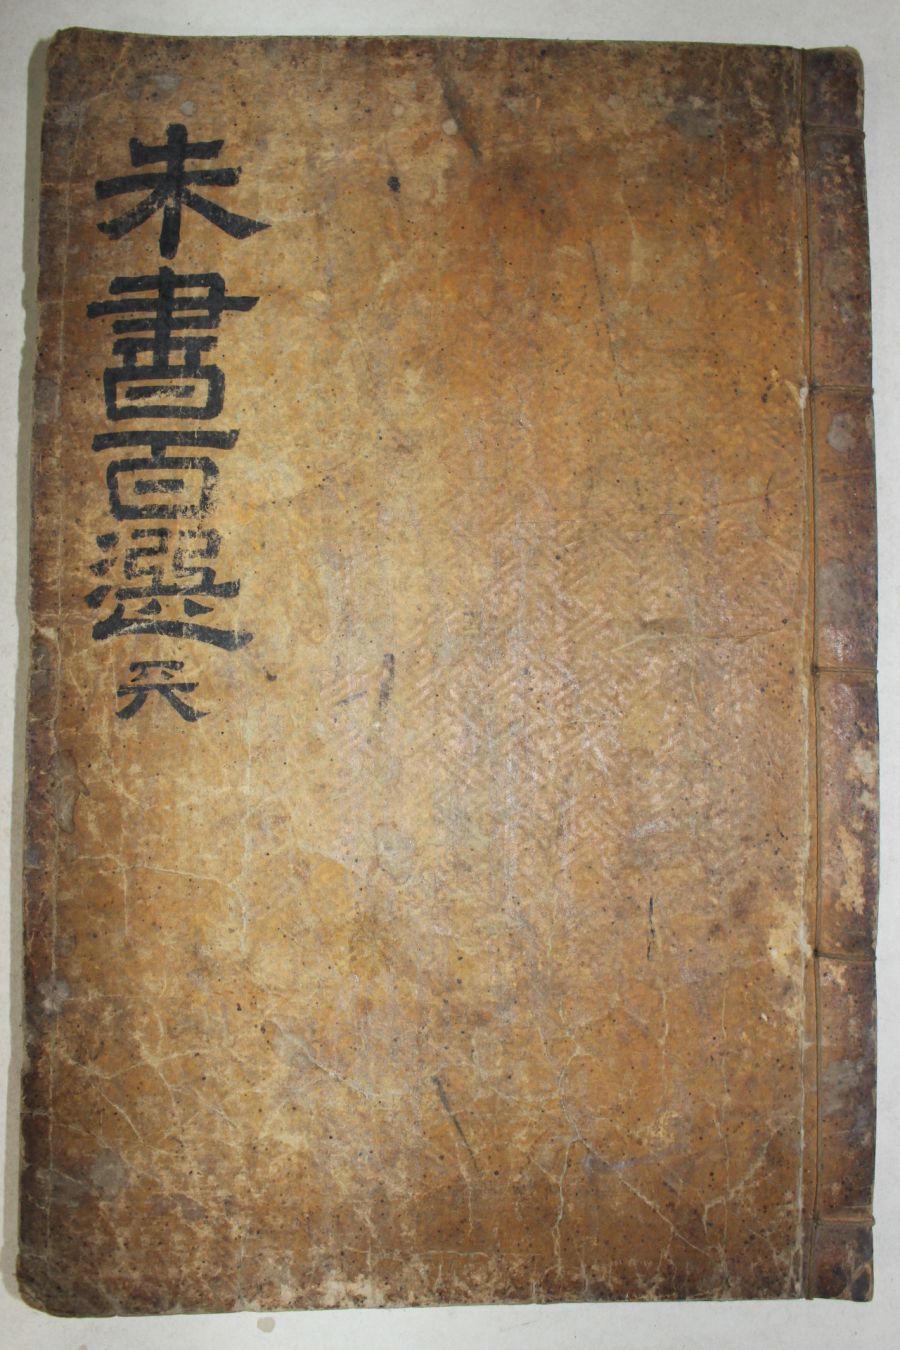 朱書百選 天